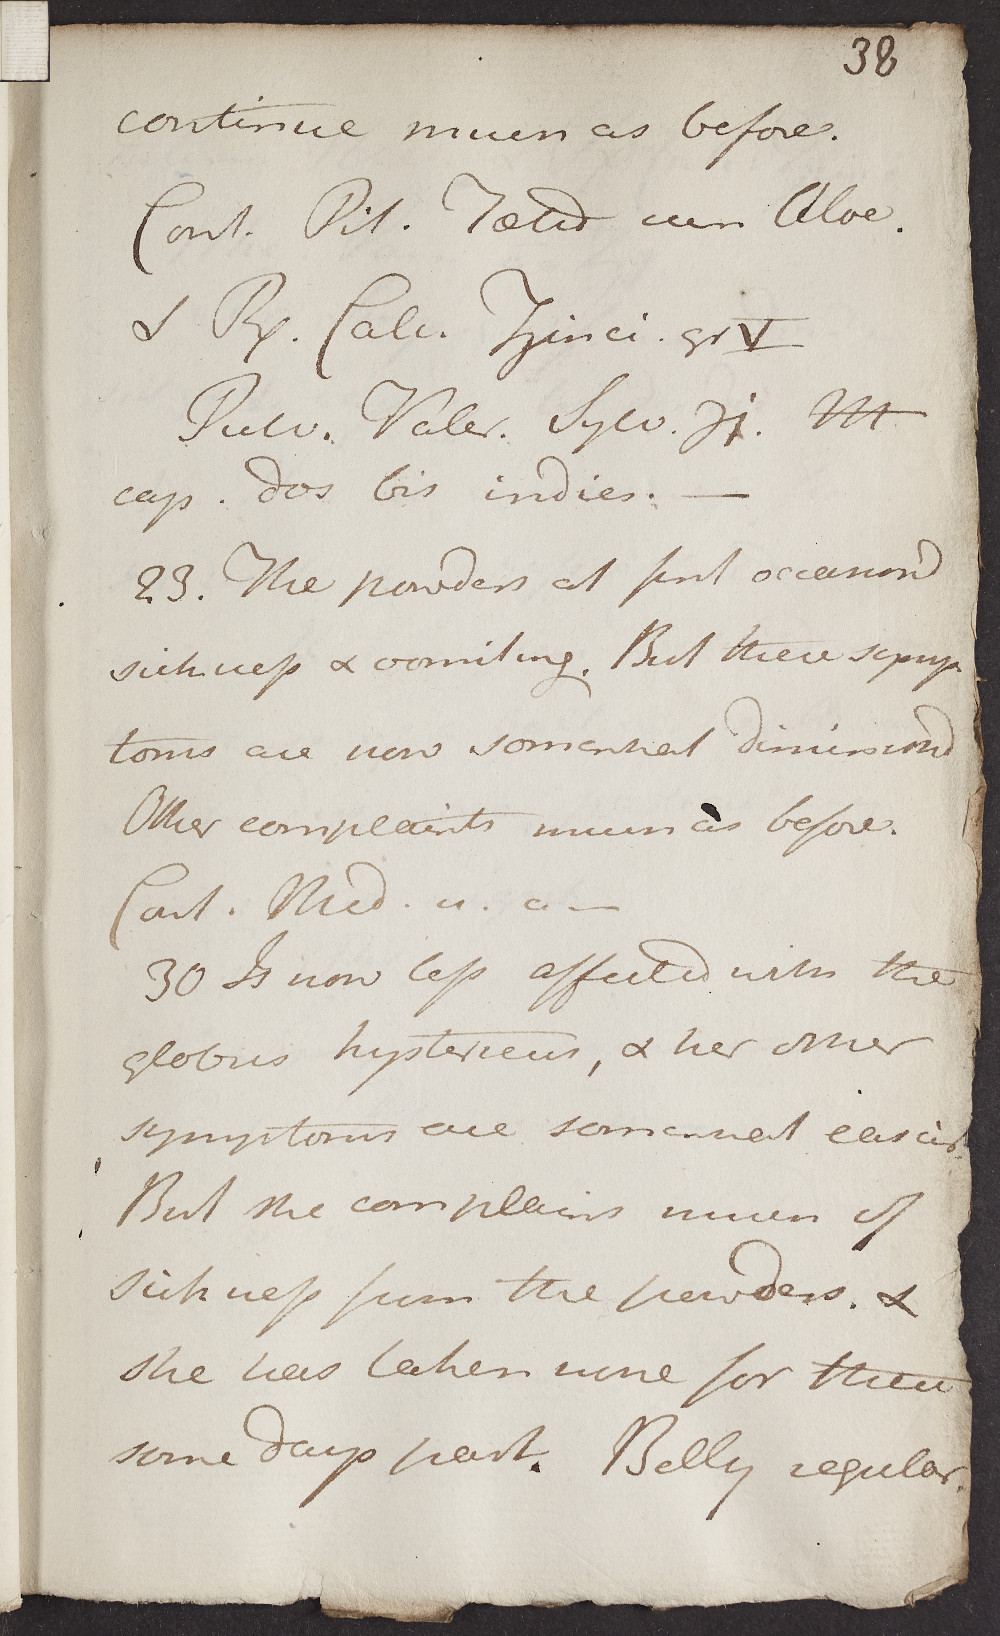 38
continue much as before.
Cont. Pil. Fœtid cum Aloe.
& Rx. Calc. Zinci. gr V
Pulv. Valer. Sylv. ʒj. M
cap. dos bis indies. —
23. The powders at first occasiond
sickness & vomiting. But these symp
toms are now somewhat diminishd
Other complaints much as before.
Cont. Med. u. a —
30 Is now less affected with the
globus hystericus, & her other
symptoms are somewhat easier.
But she complains much of
sickness from the powders. &
she has taken none for these
some days past. Belly regular.